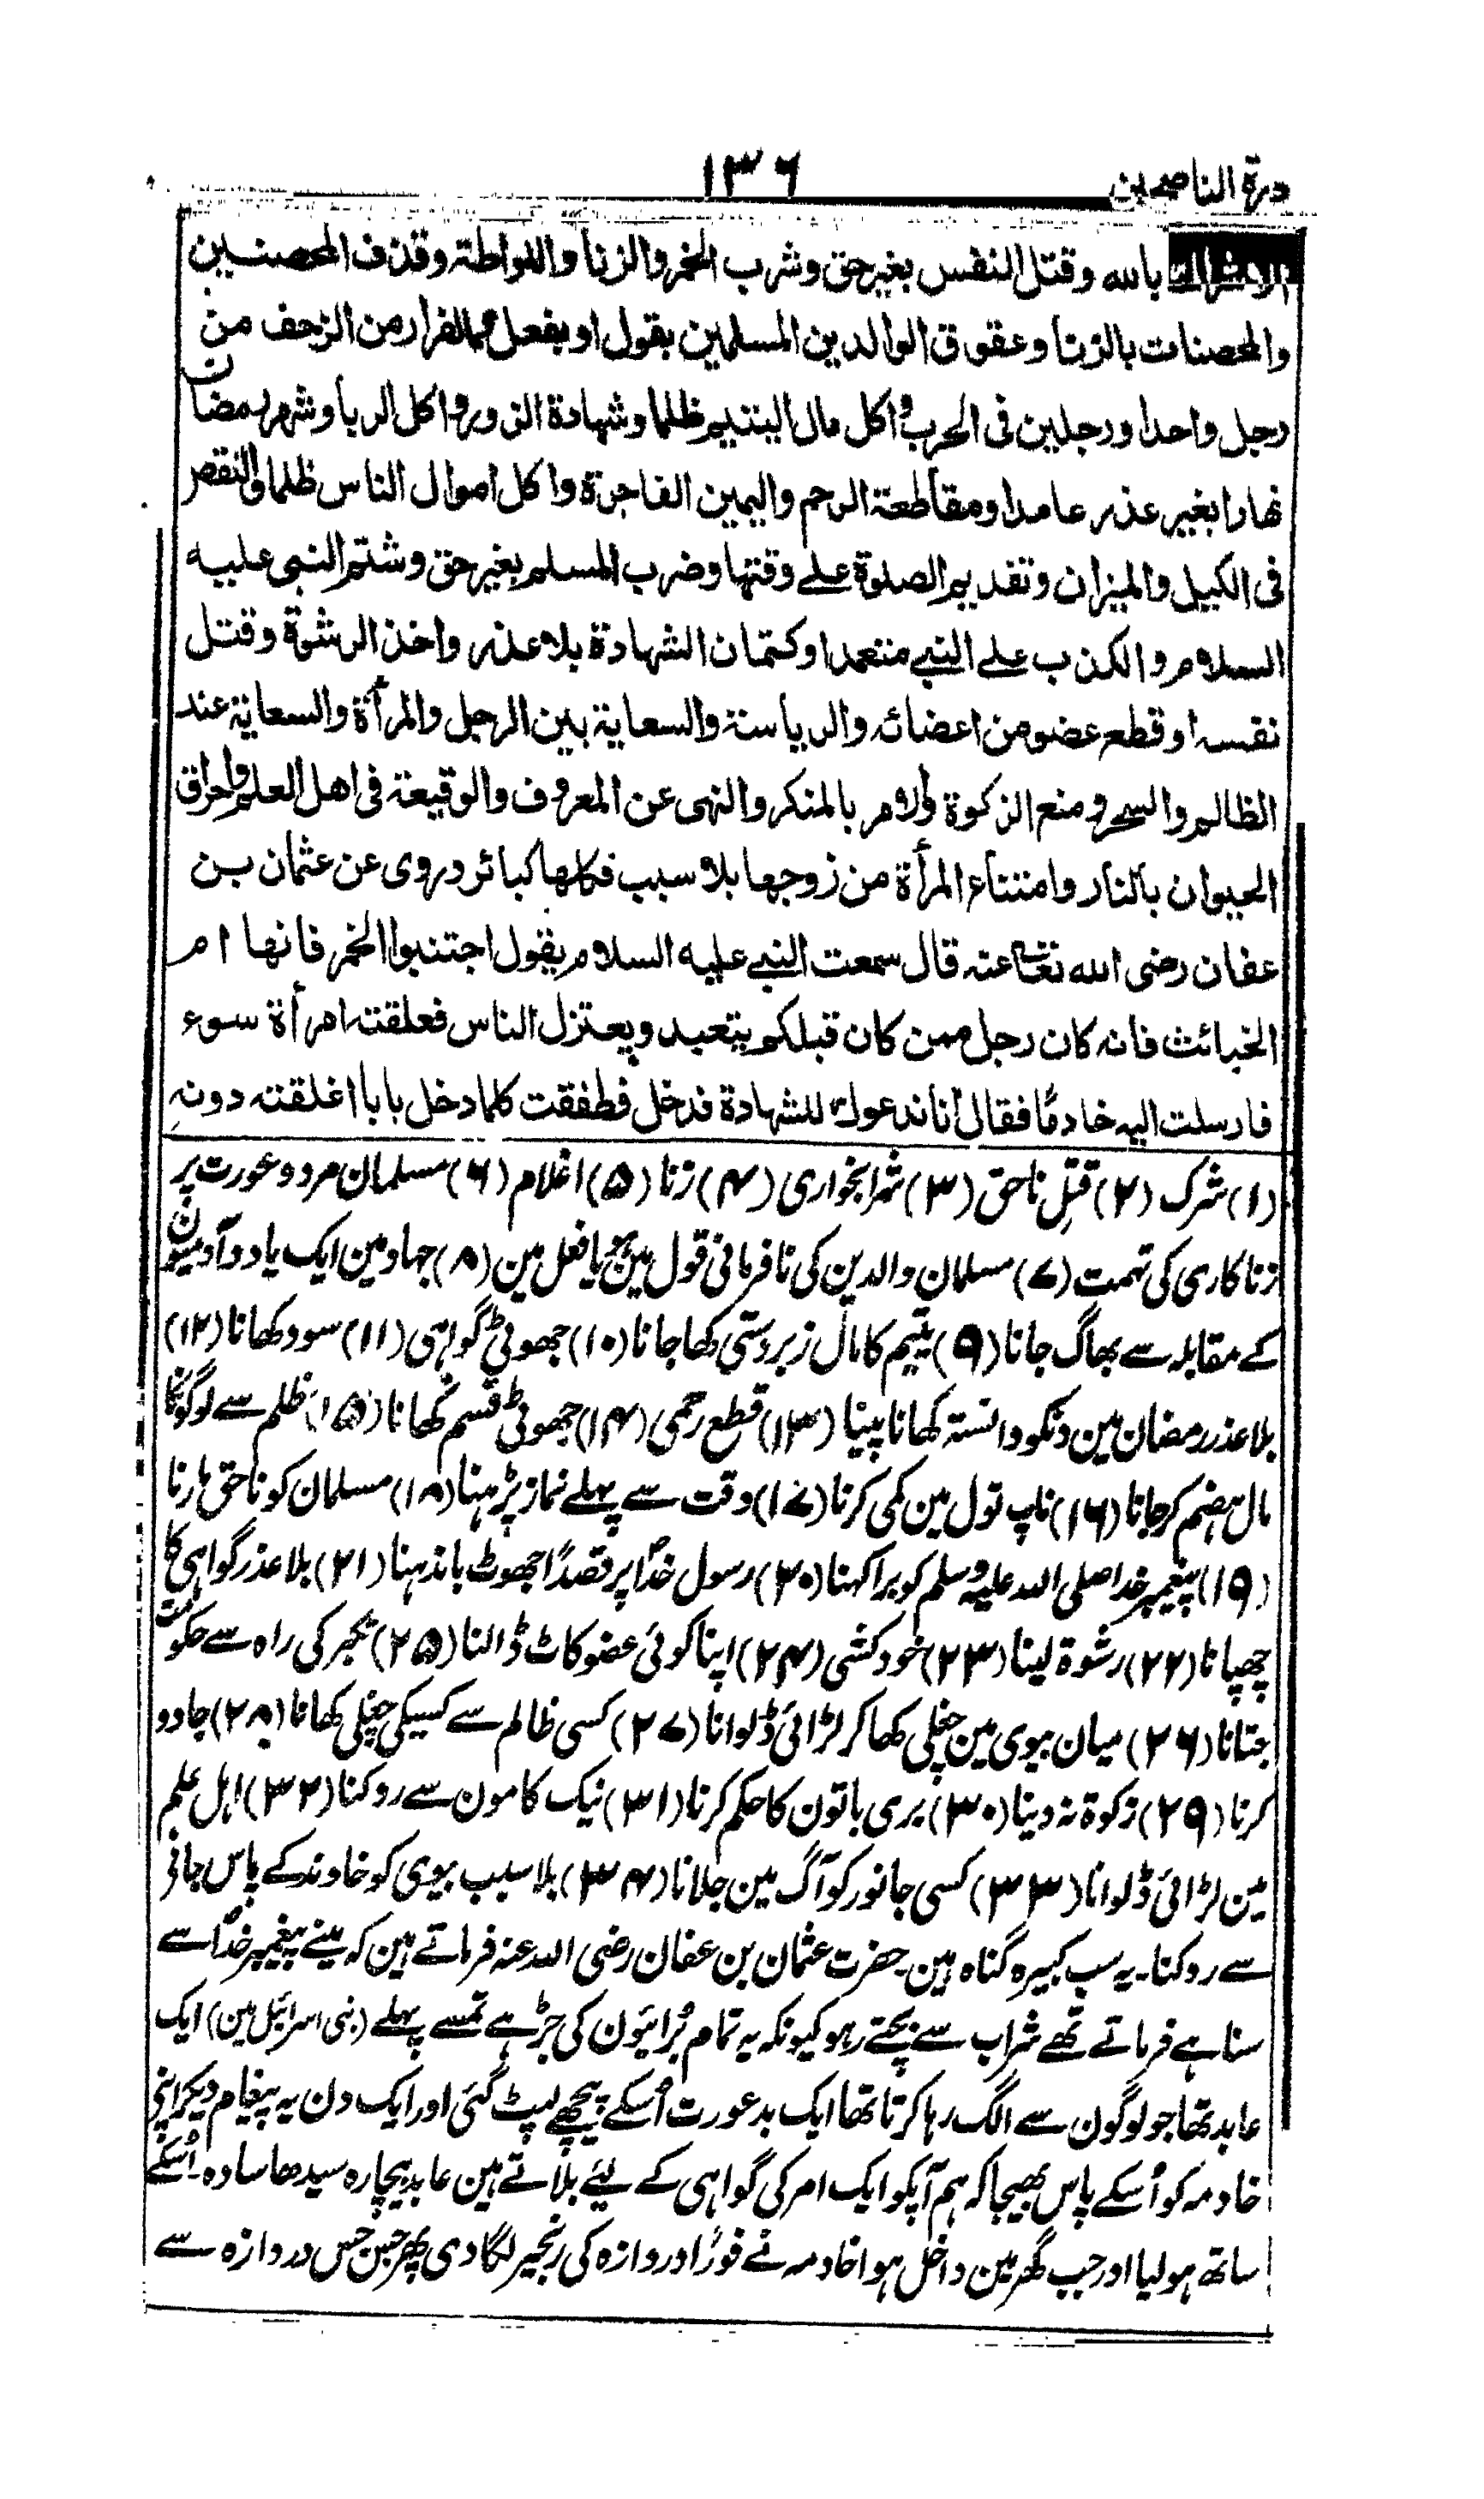 درة الناصحین
۱۳۶
الاشراك بالله وقتل النفس بغیر حق وشرب الخمر والزنا واللواطة وقذف المحصنین
والمحصنات بالزنا وعقوق الوالدین المسلمین بقول او بفعل والفرار من الزحف من
رجل واحد او رجلین فی الحرب واكل مال الیتیم ظلما وشهادة الزور واكل الربا وشهر رمضان
نهارا بغیر عذر عامدا ومقاطعة الرحم والیمین الفاجرة واكل اموال الناس ظلما والنقص
فی الكیل والمیزان وتقدیم الصلوة علے وقتها وضرب المسلم بغیر حق وشتم النبی علیه
السلام والكذب علے النبے متعمدا وكتمان الشهادة بلا عذر واخذ الرشوة وقتل
نفسه او قطع عضو من اعضائه والریاسة والسعایة بین الرجل والمرأة والسعایة عند
الظالم والسحر ومنع الزكوة والامر بالمنكر والنهی عن المعروف والوقیعة فی اهل العلم واحراق
الحیوان بالنار وامتناع المرأة من زوجها بلا سبب فكلها كبائر وروی عن عثمان بن
عفان رضی الله تعالی عنه قال سمعت النبے علیه السلام یقول اجتنبوا الخمر فانها ام
الخبائث فانه كان رجل ممن كان قبلكم یتعبد ویعتزل الناس فعلقته امرأة سوء
فارسلت الیه خادمًا فقال انا ندعوك للشهادة فدخل فطفقت كلما دخل بابا اغلقته دونه
(۱) شرک (۲) قتلِ ناحق (۳) شرابخواری (۴) زنا (۵) اغلام (۶) مسلمان مرد وعورت پر
زناکاری کی تہمت (۷) مسلمان والدین کی نافرمانی قول مین ہو یا فعل مین (۸) جہاد مین ایک یا دو آدمیون
کے مقابلہ سے بھاگ جانا (۹) یتیم کا مال زبردستی کھا جانا (۱۰) جھوٹی گواہی (۱۱) سود کھانا (۱۲)
بلا عذر رمضان مین دنکو دانستہ کھانا پینا (۱۳) قطع رحمی (۱۴) جھوٹی قسم کھانا (۱۵) ظلم سے لوگونکا
مال ہضم کرجانا (۱۶) ناپ تول مین کمی کرنا (۱۷) وقت سے پہلے نماز پڑہنا (۱۸) مسلمان کو ناحق مارنا
(۱۹) پیغمبر خدا صلی اللہ علیہ وسلم کو برا کہنا (۲۰) رسول خداؐ پر قصدًا جھوٹ باندہنا (۲۱) بلا عذر گواہی کا
چھپانا (۲۲) رشوۃ لینا (۲۳) خودکشی (۲۴) اپنا کوئی عضو کاٹ ڈالنا (۲۵) تکبر کی راہ سے حکومت
جتانا (۲۶) میان بیوی مین چغلی کھا کر لڑائی ڈلوانا (۲۷) کسی ظالم سے کسیکی چغلی کھانا (۲۸) جادو
کرنا (۲۹) زکوۃ نہ دینا (۳۰) بری باتون کا حکم کرنا (۳۱) نیک کامون سے روکنا (۳۲) اہل علم
مین لڑائی ڈلوانا (۳۳) کسی جانور کو آگ مین جلانا (۳۴) بلا سبب بیوی کو خاوند کے پاس جانی
سے روکنا۔ یہ سب کبیرہ گناہ ہین۔ حضرت عثمان بن عفان رضی اللہ عنہ فرماتے ہین کہ مینے پیغمبر خداؐ سے
سنا ہے فرماتے تھے شراب سے بچتے رہو کیونکہ یہ تمام بُرائیون کی جڑ ہے تمسے پہلے (بنی اسرائیل مین) ایک
عابد تھا جو لوگون سے الگ رہا کرتا تھا ایک بد عورت اُسکے پیچھے لپٹ گئی اور ایک دن یہ پیغام دیکر اپنی
خادمہ کو اُسکے پاس بھیجا کہ ہم آپکو ایک امر کی گواہی کے لیئے بلاتے ہین عابد بیچارہ سیدھا سادہ۔ اُسکے
ساتھ ہو لیا اور جب گھر مین داخل ہوا خادمہ نے فورًا دروازہ کی زنجیر لگا دی پھر جس جس دروازہ سے